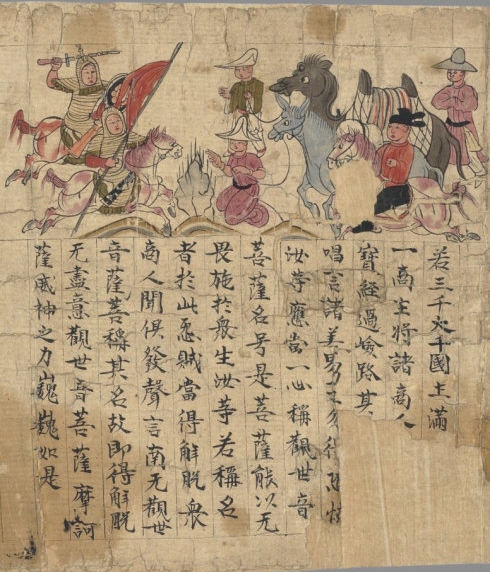 若三千大千國土滿
一商主將諸商人
寶經過嶮路其
唱言諸善男子勿得恐怖
汝等應當一心稱觀世音
菩薩名号是菩薩能以无
畏施於衆生汝等若稱名
者於此怨賊當得解脫衆
商人聞俱發聲言南无觀世
音薩菩稱其名故即得解脫
无盡意觀世音菩薩摩訶
薩威神之力巍巍如是